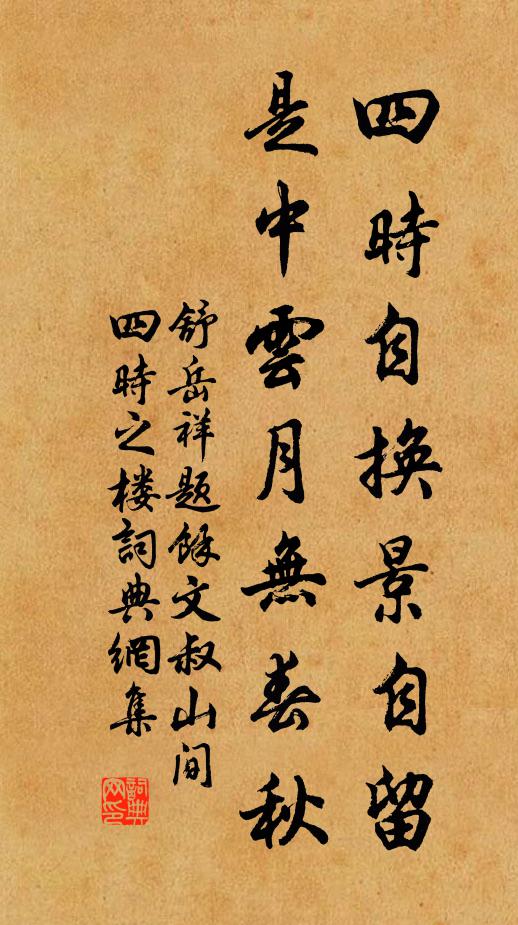 四時自換景自留
是中雲月無春秋
舒岳祥題餘文叔山间
四時之楼詞典網集
詞典网印